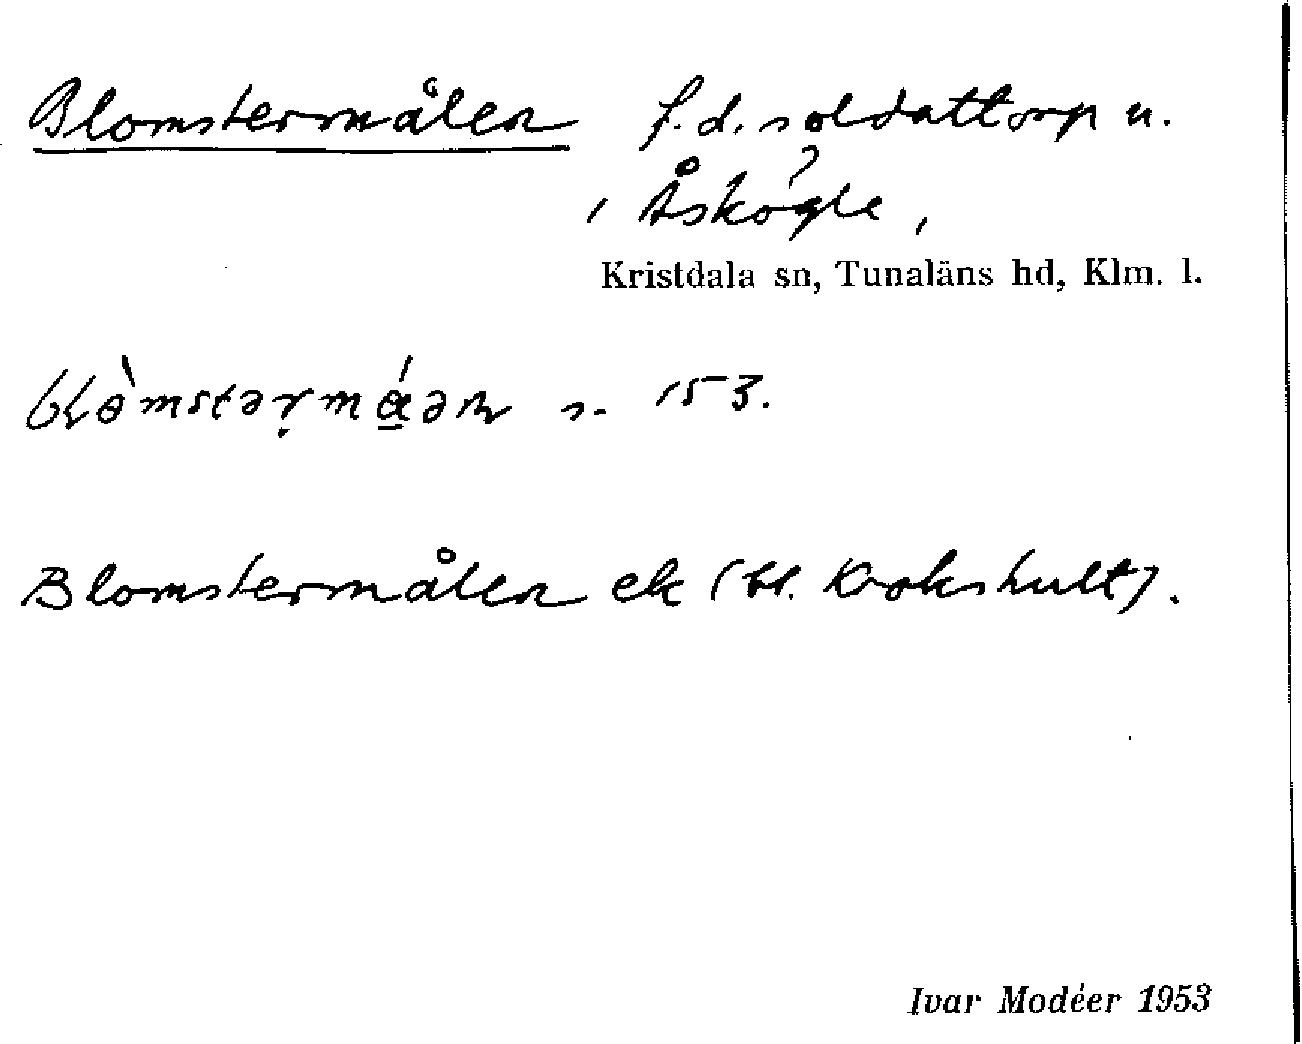 Blomstermålen f.d. soldattorp u.
Åskögle,
Kristdala sn, Tunaläns hd, Klm. l.
s. 153.
Blomstermålen ek (bl. Krokshult).
Ivar Modéer 1953